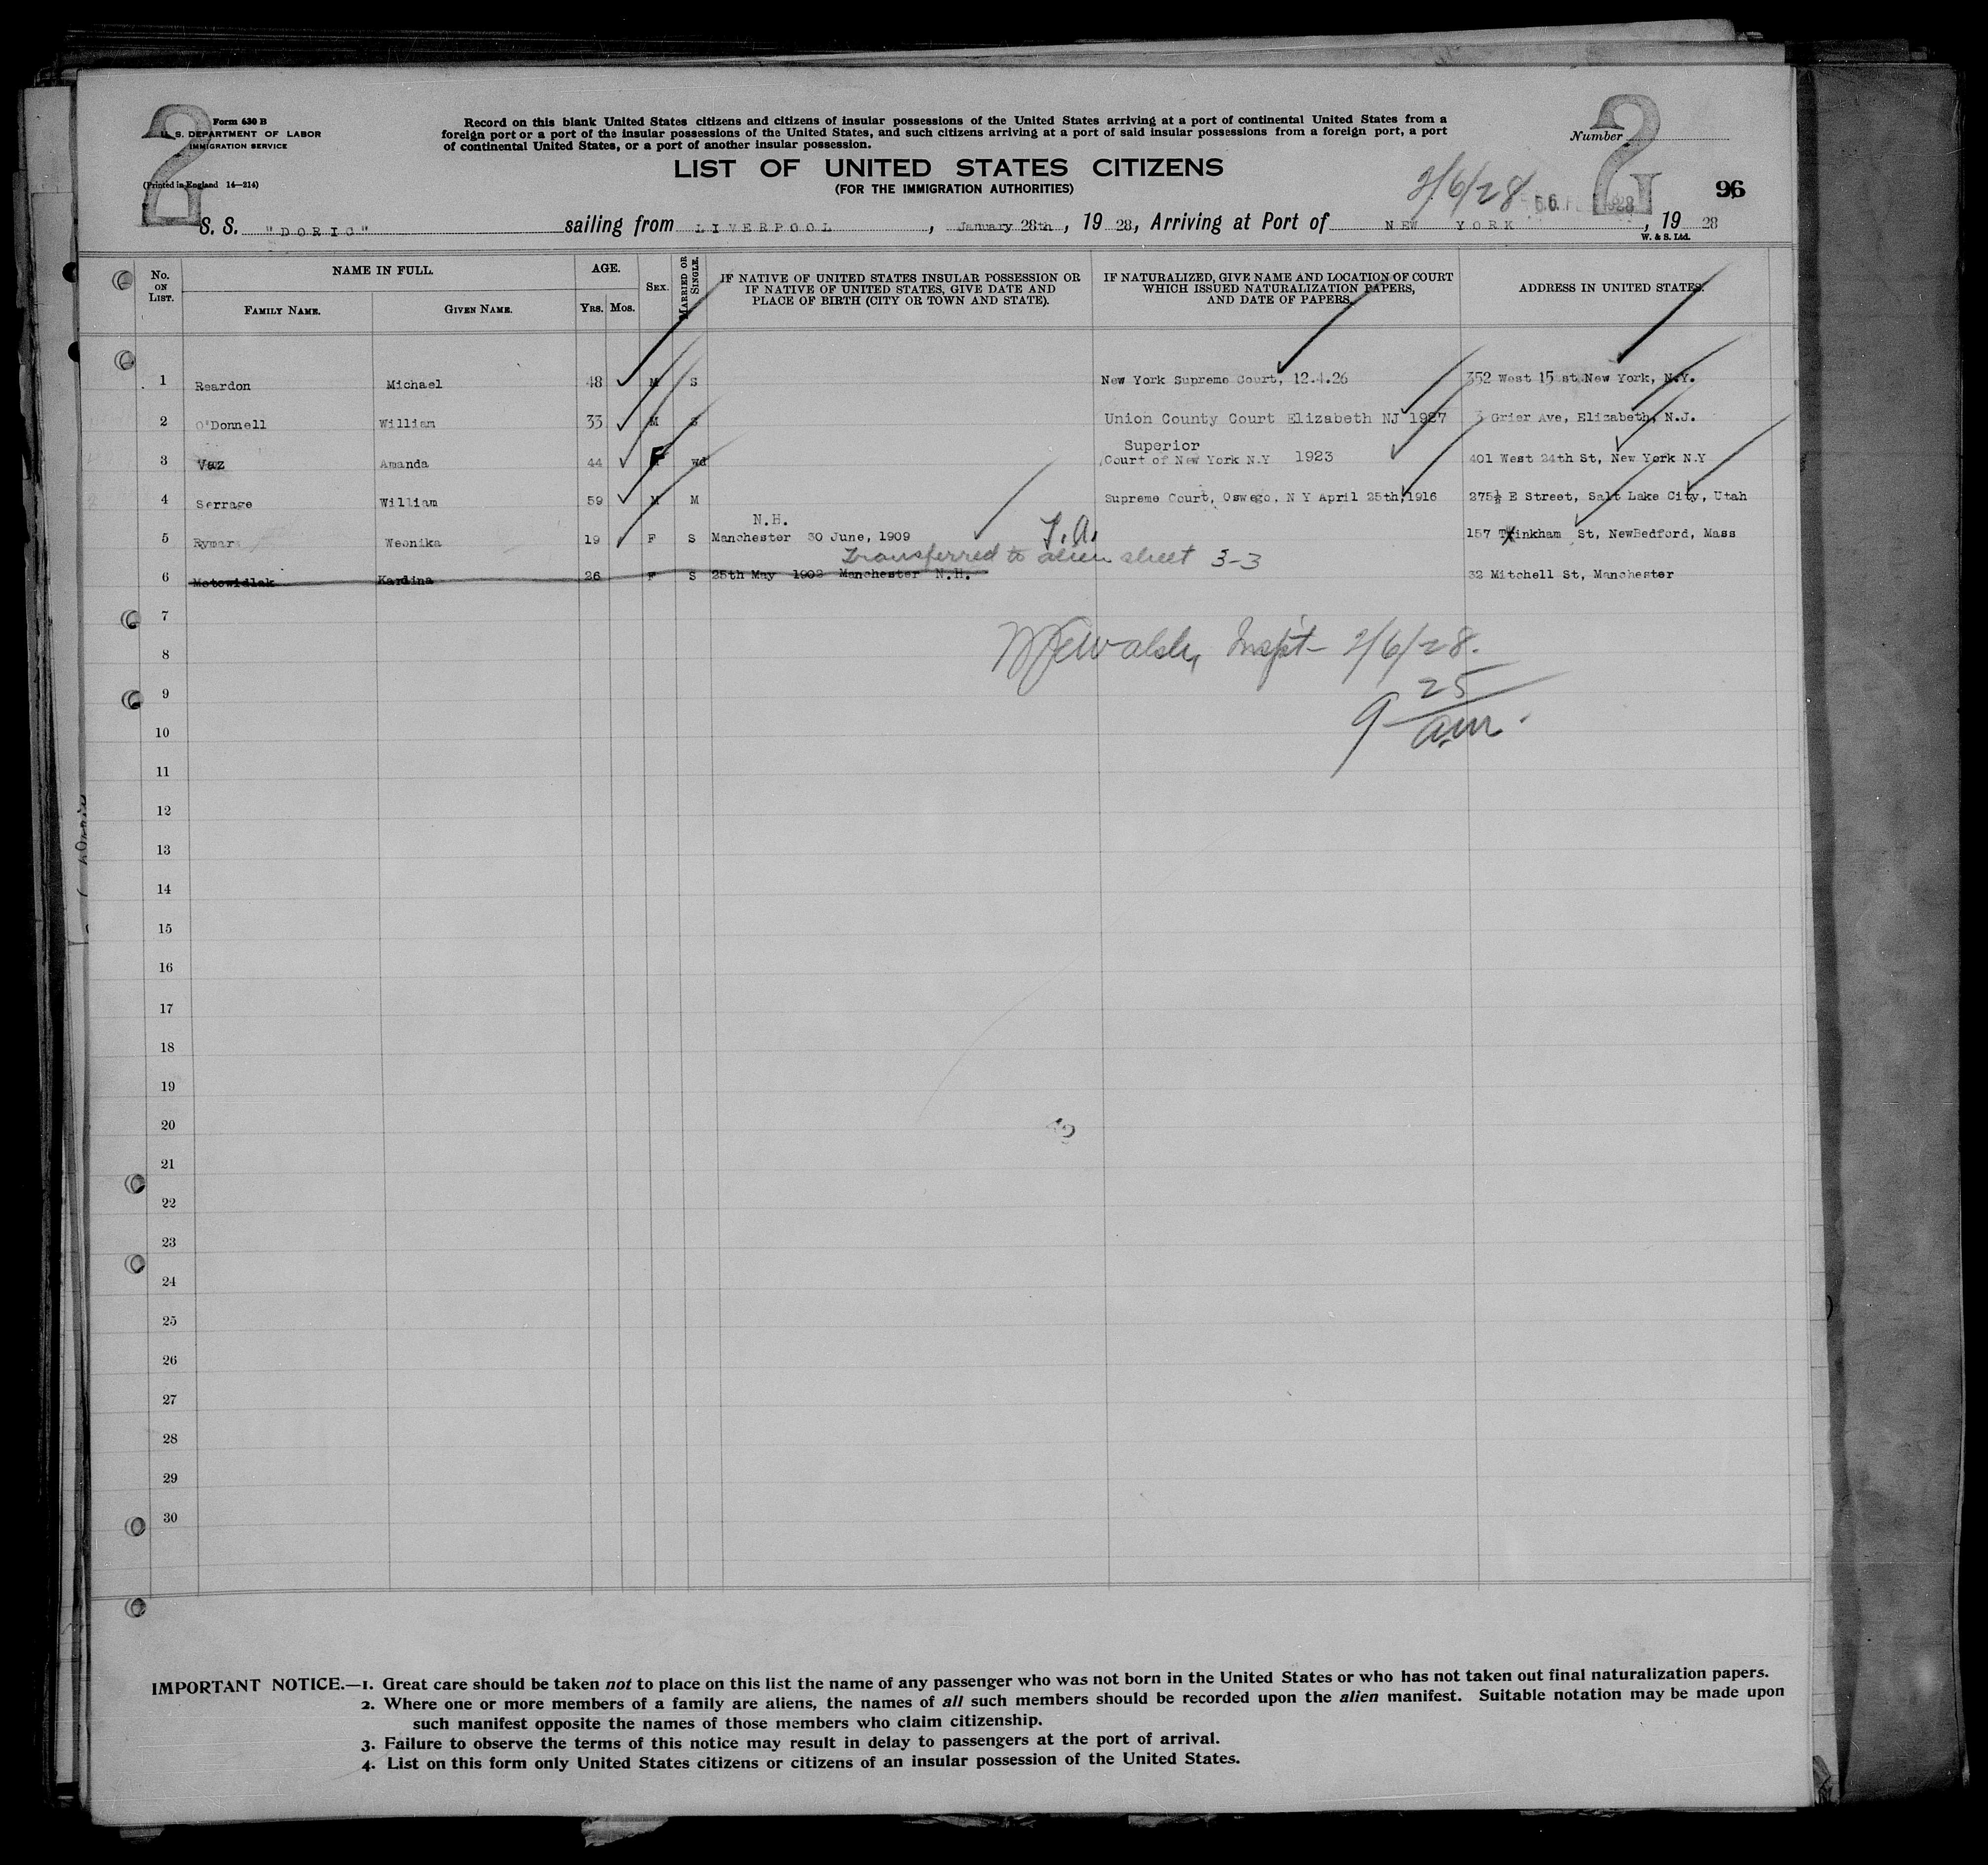 2
Form 630 B
U. S. DEPARTMENT OF LABOR
IMMIGRATION SERVICE
(Printed in England 14—214)
Record on this blank United States citizens and citizens of insular possessions of the United States arriving at a port of continental United States from a
foreign port or a port of the insular possessions of the United States, and such citizens arriving at a port of said insular possessions from a foreign port, a port
of continental United States, or a port of another insular possession.
LIST OF UNITED STATES CITIZENS
(FOR THE IMMIGRATION AUTHORITIES)
Number
2
2/6/28
96
S. S. "DORIC" sailing from LIVERPOOL, January 28th, 19 28, Arriving at Port of NEW YORK, 19 28
W. & S. Ltd.
No. ON LIST. NAME IN FULL. FAMILY NAME. GIVEN NAME. AGE. YRS. MOS. SEX. MARRIED OR SINGLE. IF NATIVE OF UNITED STATES INSULAR POSSESSION OR IF NATIVE OF UNITED STATES, GIVE DATE AND PLACE OF BIRTH (CITY OR TOWN AND STATE). IF NATURALIZED, GIVE NAME AND LOCATION OF COURT WHICH ISSUED NATURALIZATION PAPERS, AND DATE OF PAPERS. ADDRESS IN UNITED STATES.
1 Reardon Michael 48 M S New York Supreme Court, 12.4.26 352 West 15 st New York, N.Y.
2 O'Donnell William 33 M S Union County Court Elizabeth NJ 1927 3 Grier Ave, Elizabeth, N.J.
Superior
3 Vaz Amanda 44 F wd Court of New York N.Y 1923 401 West 24th St, New York N.Y
4 Serrage William 59 M M Supreme Court, Oswego, N Y April 25th, 1916 275½ E Street, Salt Lake City, Utah
N.H.
5 Rymar Weonika 19 F S Manchester 30 June, 1909 157 Tinkham St, NewBedford, Mass
Transferred to alien sheet 3-3
6 Motowidlak Kardina 26 F S 25th May 1902 Manchester N.H. 32 Mitchell St, Manchester
7
Inspt- 2/6/28.
8
9
9 25/am.
10
11
12
13
14
15
16
17
18
19
20
21
22
23
24
25
26
27
28
29
30
IMPORTANT NOTICE.—1. Great care should be taken not to place on this list the name of any passenger who was not born in the United States or who has not taken out final naturalization papers.
2. Where one or more members of a family are aliens, the names of all such members should be recorded upon the alien manifest. Suitable notation may be made upon
such manifest opposite the names of those members who claim citizenship.
3. Failure to observe the terms of this notice may result in delay to passengers at the port of arrival.
4. List on this form only United States citizens or citizens of an insular possession of the United States.